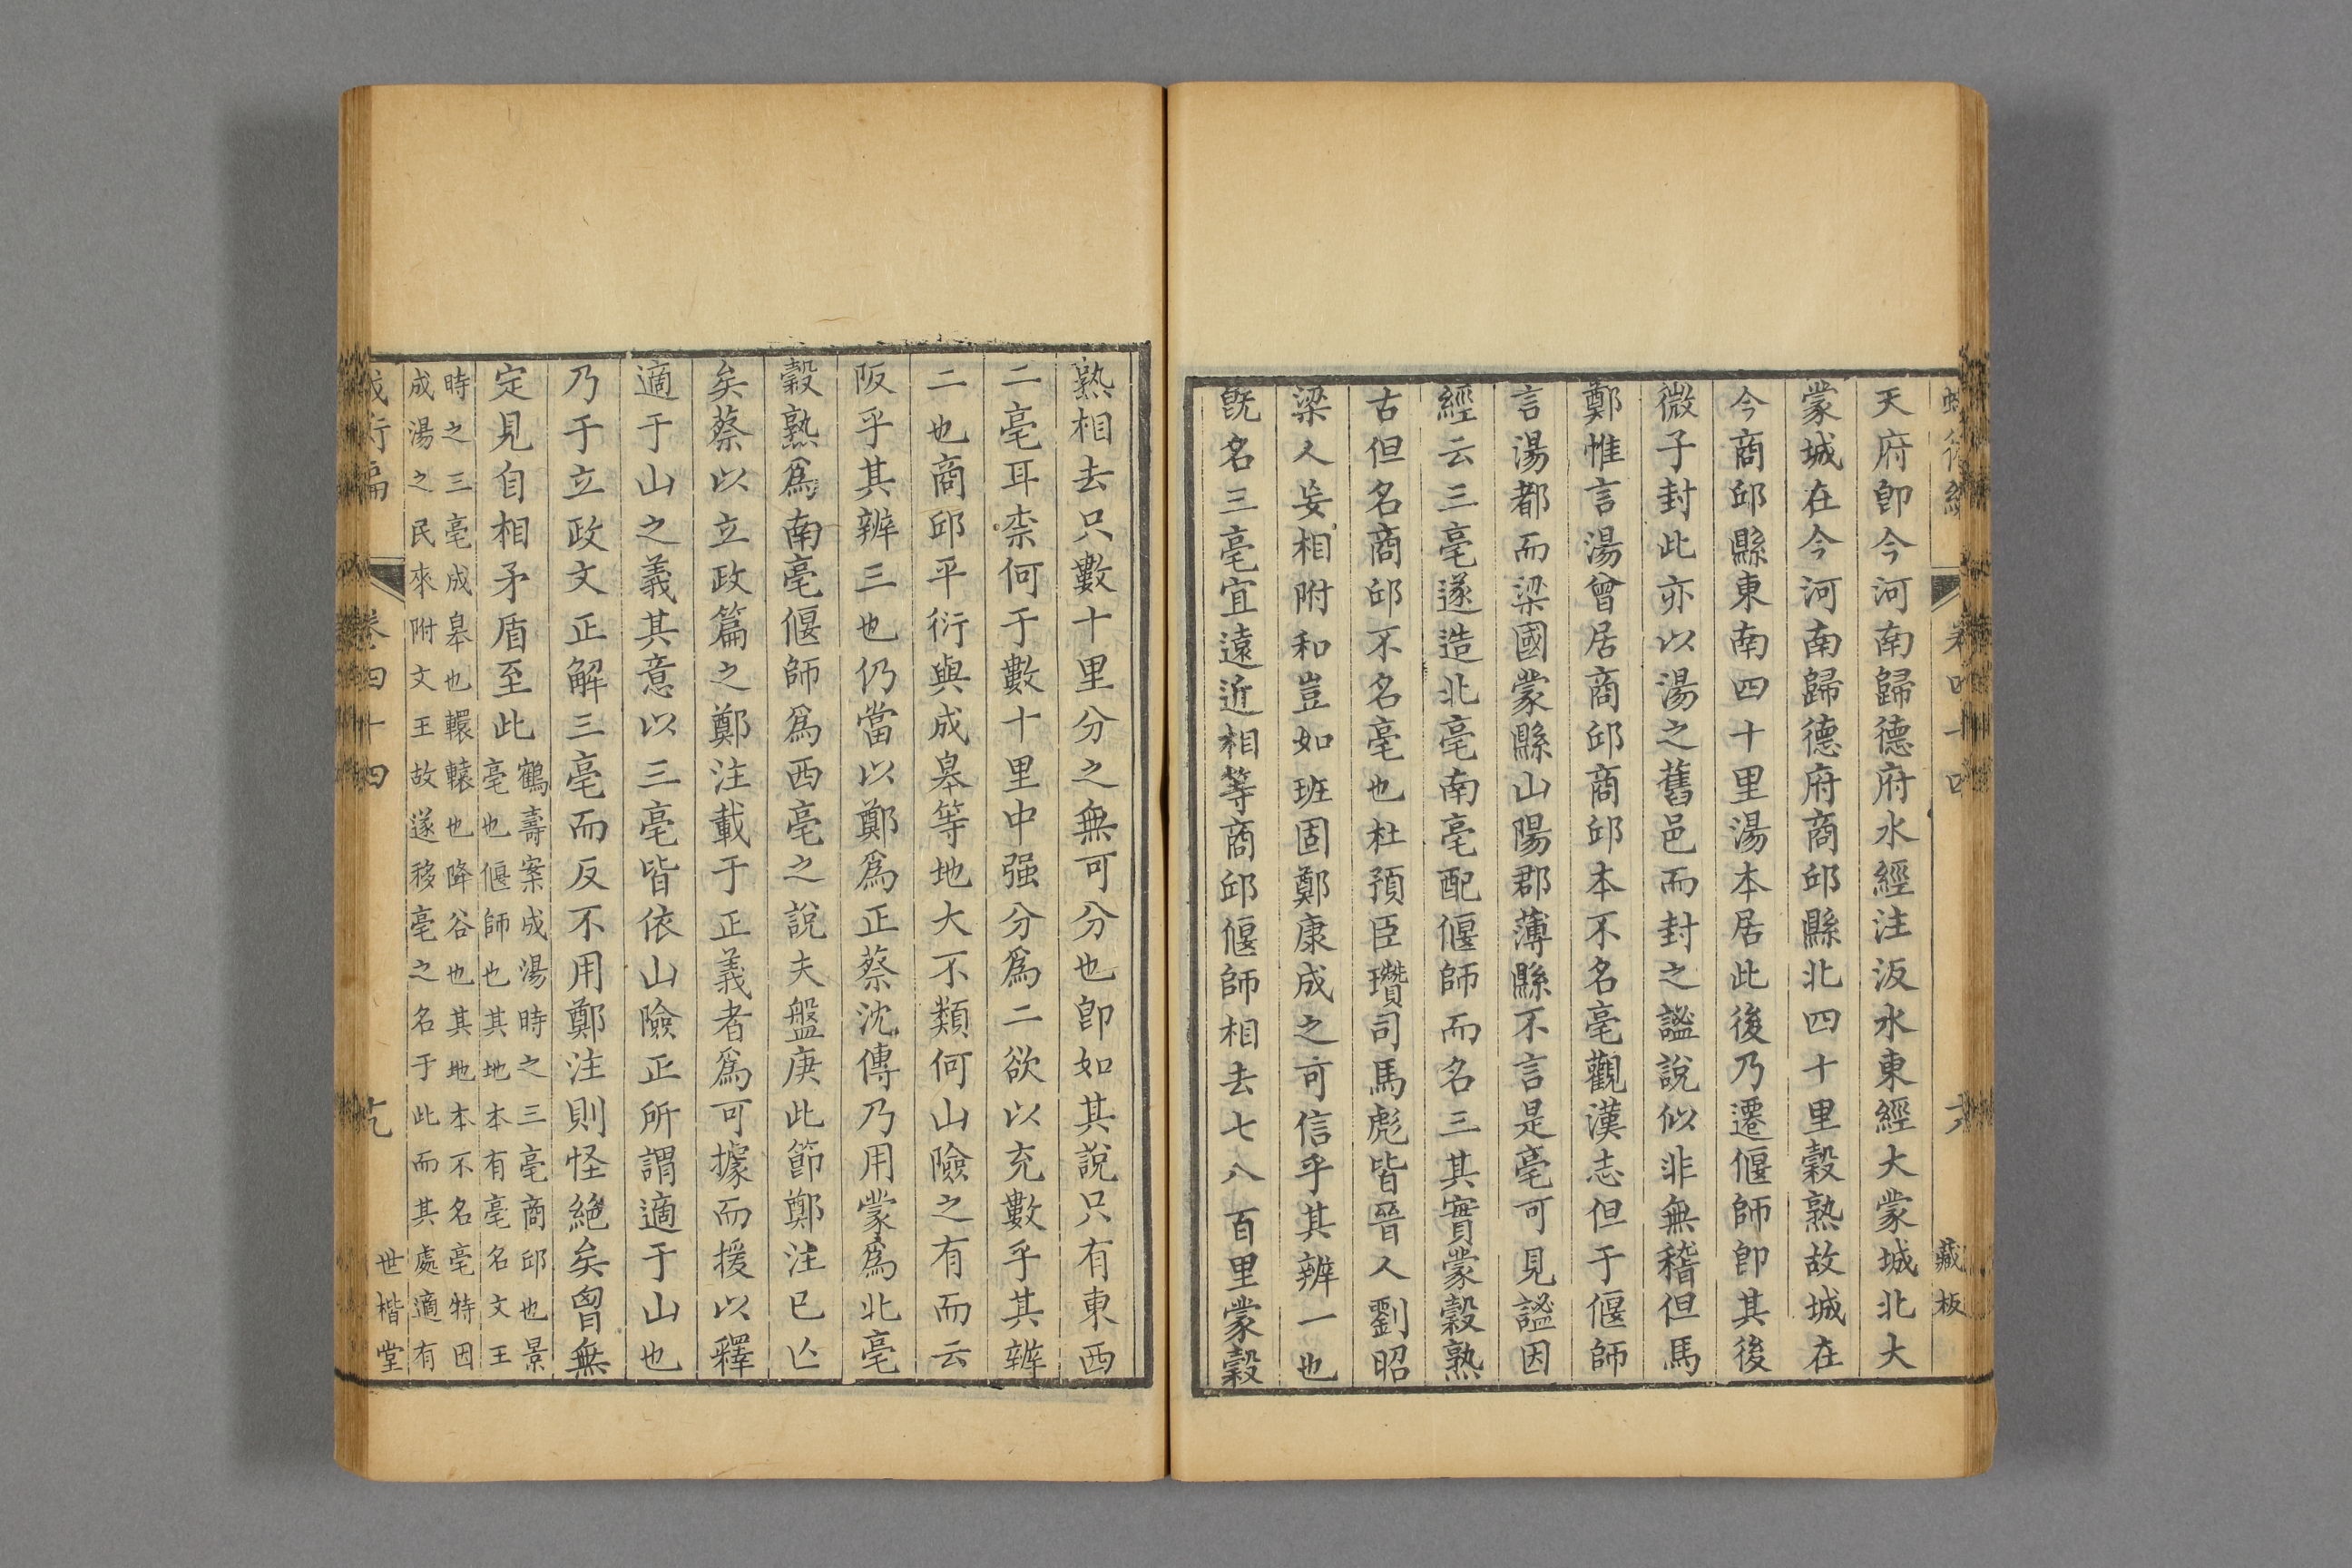 天府卽今河南歸德府水經注汳水東經大蒙城北大
蒙城在今河南歸德府商邱縣北四十里穀熟故城在
今商邱縣東南四十里湯本居此後乃遷偃師卽其後
微子封此亦以湯之舊邑而封之謐說似非無稽但馬
鄭惟言湯曾居商邱商邱本不名亳觀漢志但于偃師
言湯都而梁國蒙縣山陽郡薄縣不言是亳可見謐因
經云三亳遂造北亳南亳配偃師而名三其實蒙穀熟
古但名商邱不名亳也杜預臣瓚司馬彪皆晉人劉昭
梁人妄相附和豈如班固鄭康成之可信乎其辨一也
旣名三亳宜遠近相等商邱偃師相去七八百里蒙穀
熟相去只數十里分之無可分也卽如其說只有東西
二亳耳柰何于數十里中强分爲二欲以充數乎其辨
二也商邱平衍與成皋等地大不類何山險之有而云
阪乎其辨三也仍當以鄭爲正蔡沈傳乃用蒙爲北亳
穀熟爲南亳偃師爲西亳之說夫盤庚此節鄭注已亾
矣蔡以立政篇之鄭注載于正義者爲可據而援以釋
適于山之義其意以三亳皆依山險正所謂適于山也
乃于立政文正解三亳而反不用鄭注則怪絕矣胷無
定見自相矛盾至此
鶴壽案成湯時之三亳商邱也景
亳也偃師也其地本有亳名文王
時之三亳成皋也轘轅也降谷也其地本不名亳特因
成湯之民來附文王故遂移亳之名于此而其處適有
卷四十四
世楷堂
藏板